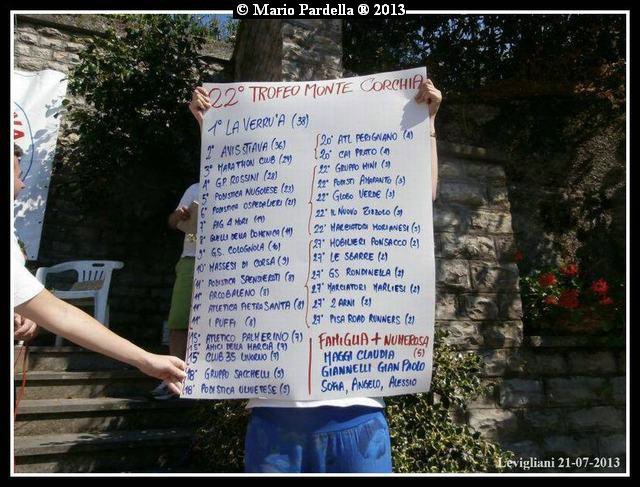 © Mario Pardella ® 2013
22° TROFEO MONTE CORCHIA
1° LA VERRU'A (38)
2° AVIS STIAVA (36)
3° MARATHON CLUB (29)
4° G.P. ROSSINI (28)
5° PODISTICA NUGOLESE (23)
6° PODISTICA OSPEDALIERI (21)
7° PAG 4 MORI (19)
8° QUELLI DELLA DOMENICA (11)
9° G.S. COLOGNOLA (10)
10° MASSESI DI CORSA (9)
11° PODISTICA (8)
11° ARCOBALENO (8)
11° ATLETICA PIETRASANTA (8)
11° I PUFFI (8)
15° ATLETICO PALMERINO (7)
15° AMICI DELLA MARCIA (7)
15° CLUB 35 LIVORNO (7)
18° GRUPPO SACCHELLI (5)
18° PODISTICA ULIVETESE (5)
20° ATL PERIGNANO (4)
20° CAI PRATO (4)
22° GRUPPO MINI (3)
22° PODISTI AMARANTO (3)
22° GLOBO VERDE (3)
22° IL NUOVO ZIZZOLO (3)
22° MARCIATORI MORIANESI (3)
27° MOBILIERI PONSACCO (2)
27° LE SBARRE (2)
27° GS RONDINELLA (2)
27° MARCIATORI MARLIESI (2)
27° 2 ARNI (2)
27° PISA ROAD RUNNERS (2)
FAMIGLIA + NUMEROSA
MAGGI CLAUDIA (5)
GIANNELLI GIAN PAOLO
SOFIA, ANGELO, ALESSIO
Levigliani 21-07-2013